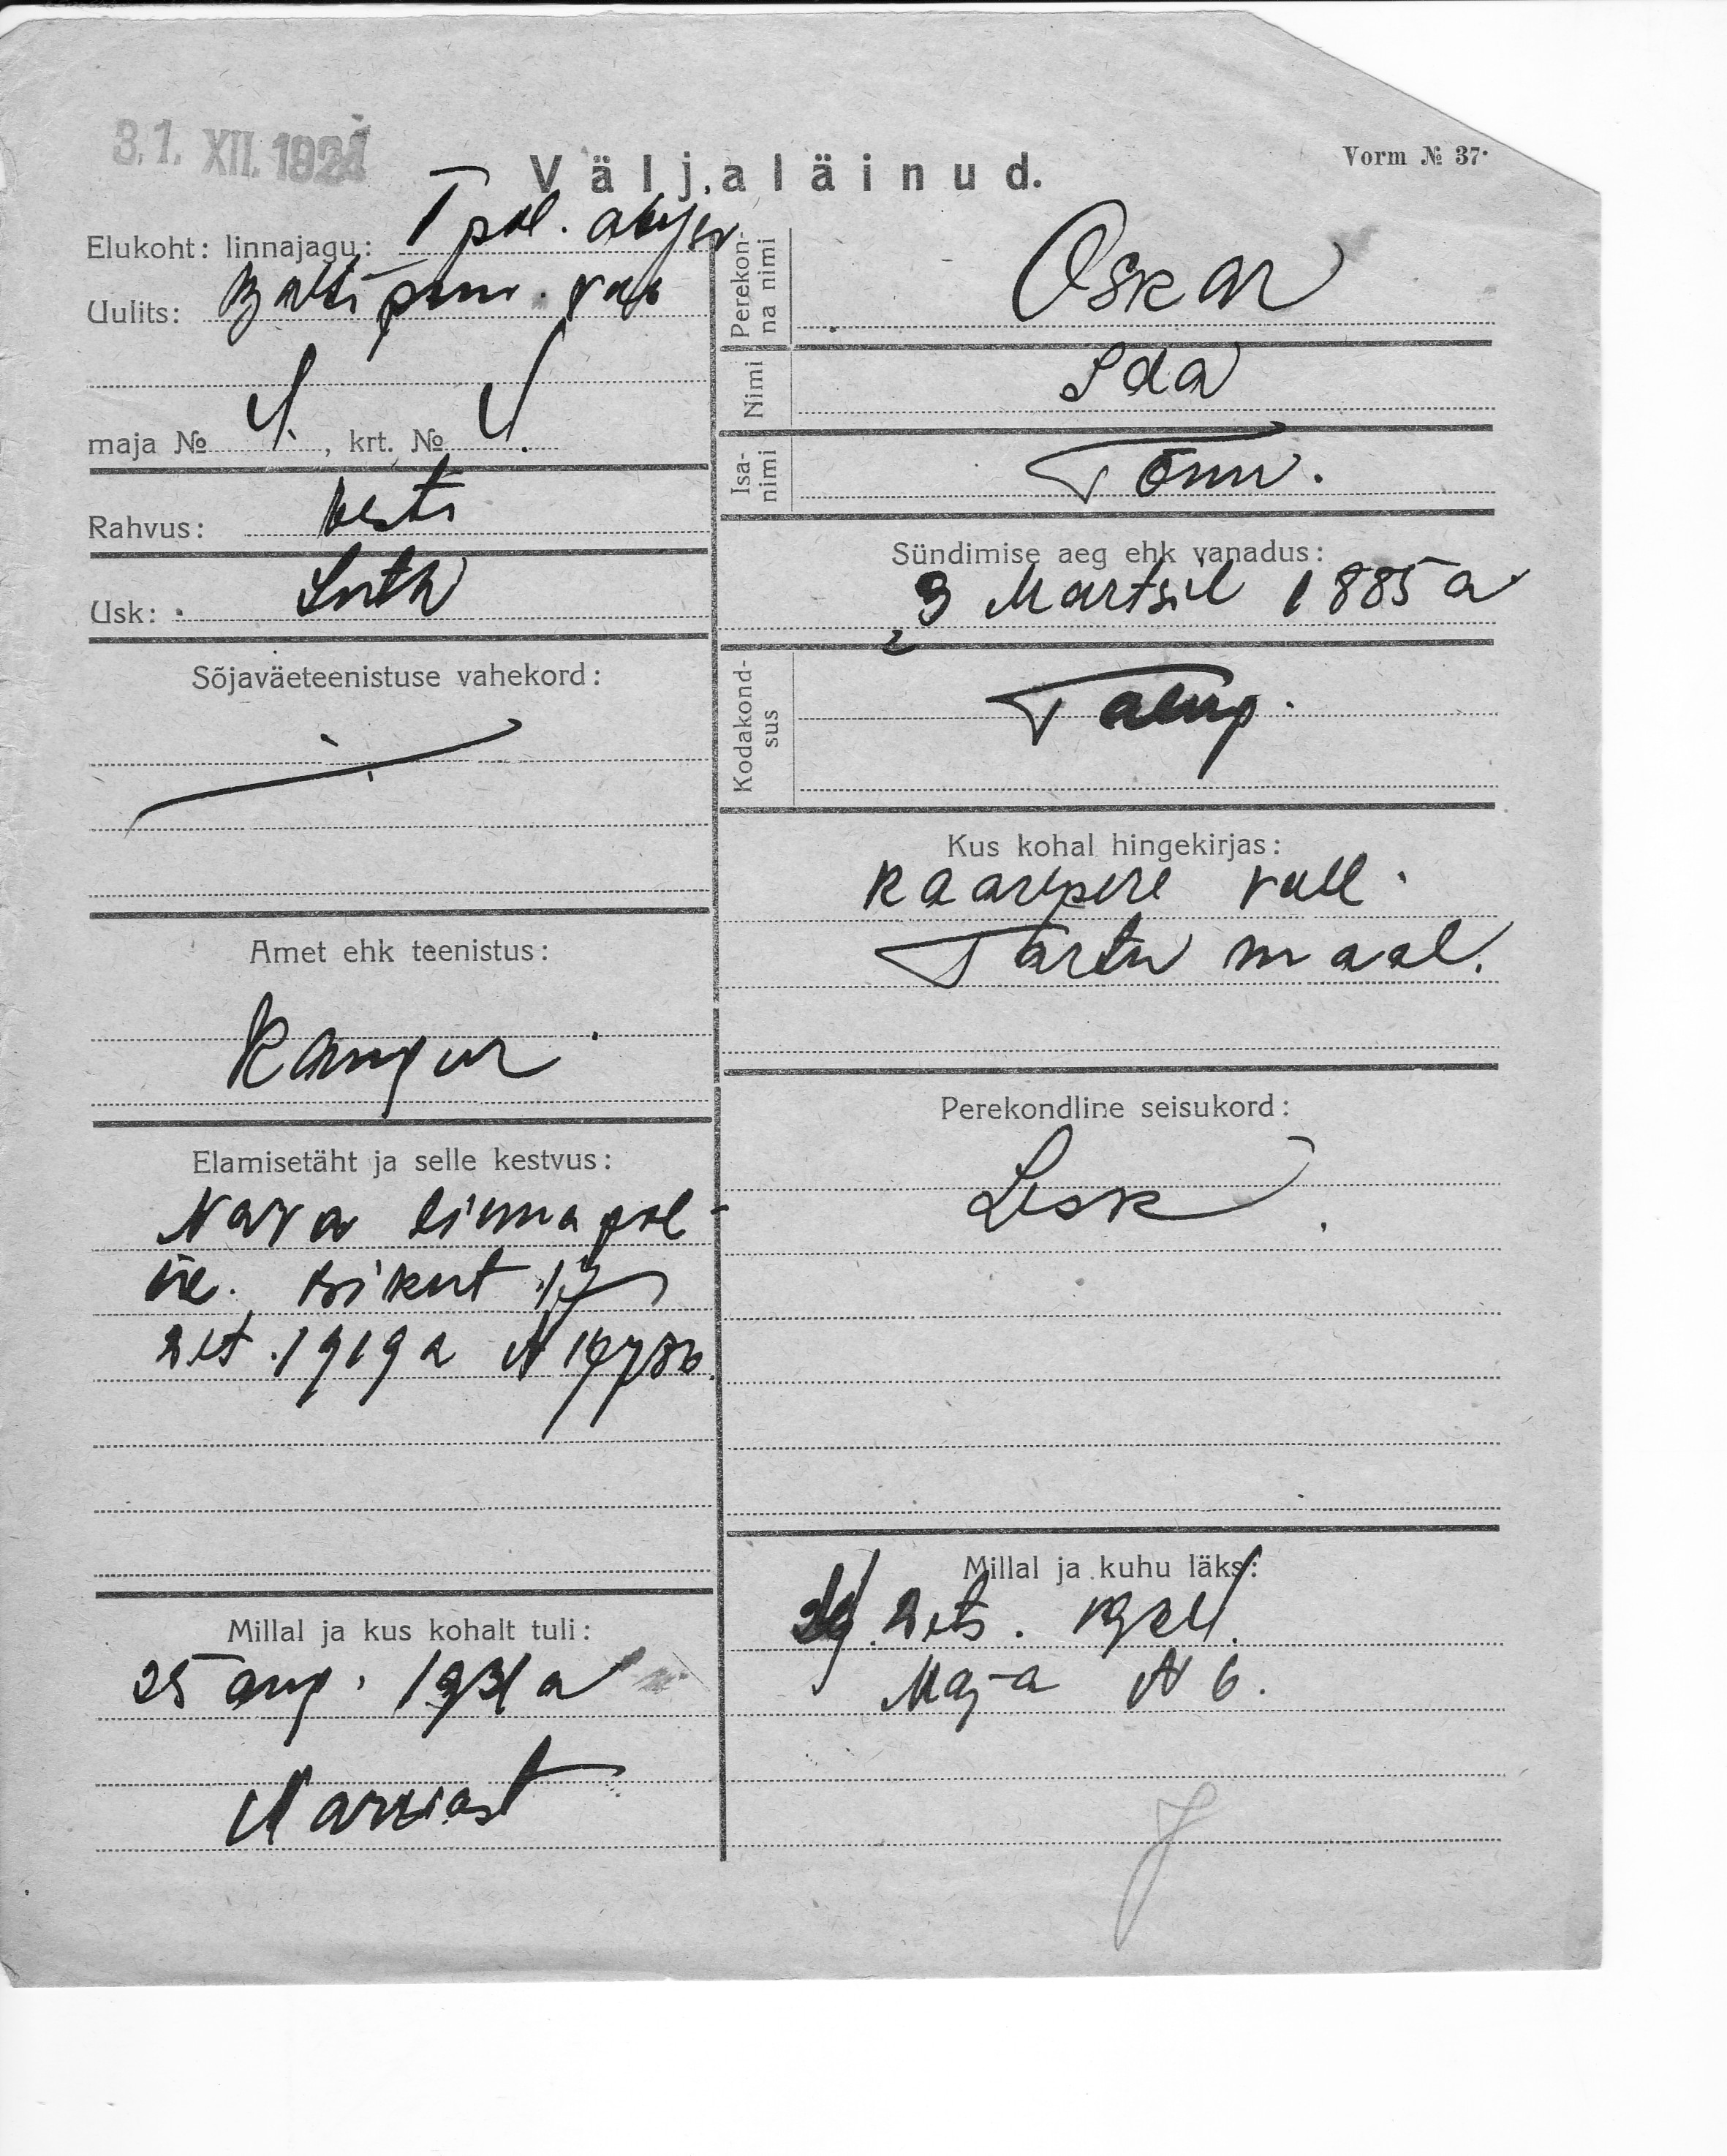 31. XII. 1921
Väljaläinud.
Vorm № 37.
Elukoht: linnajagu: I pol.
Uulits: Balti puu. vab
maja № 1., krt. № 1.
Rahvus: eesti
Usk: Luth
Sõjaväeteenistuse vahekord:
Amet ehk teenistus:
Kangur
Elamisetäht ja selle kestvus:
Narva linna pol
ül.
det. 1919 a №
Millal ja kus kohalt tuli:
25 aug. 1921 a
Narvast
Perekonna nimi
Oskar
Nimi
Ida
Isanimi
Tõnu.
Sündimise aeg ehk vanadus:
3 Märtsil 1885 a
Kodakondsus
Talup.
Kus kohal hingekirjas:
Kaarepere vall.
Tartu maal.
Perekondline seisukord:
Lesk
Millal ja kuhu läks:
29. dets. 1921.
Maja № 6.